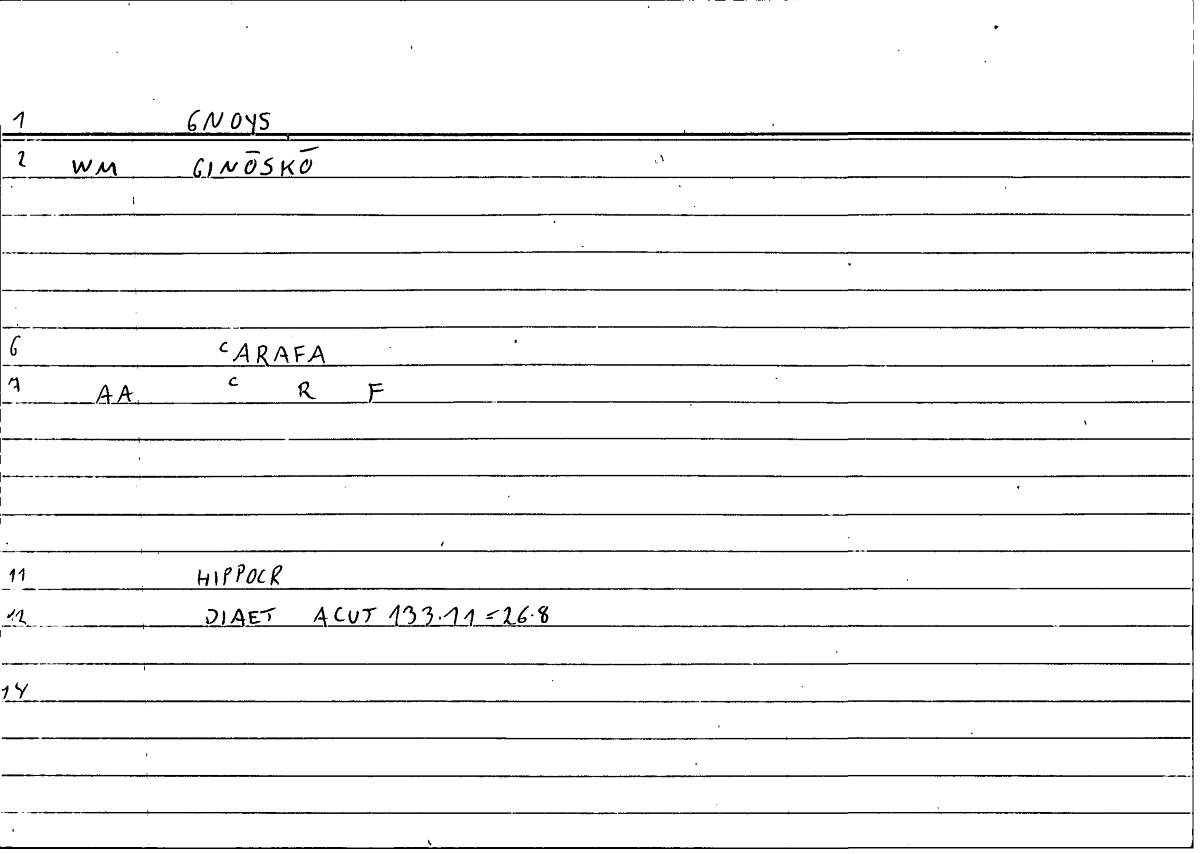 1 GNOYS
2 WM GINŌSKŌ
6 ʿARAFA
7 AA ʿ R F
11 HIPPOCR
12 DIAET ACUT 133.11=26.8
14